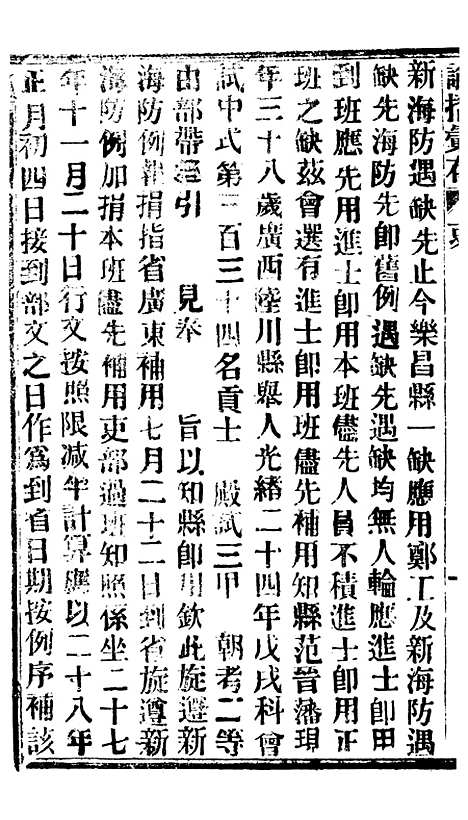 諭摺彙存 吏
新海防遇缺先止今樂昌縣一缺應用鄭工及新海防遇
缺先海防先卽舊例遇缺先遇缺均無人輪應進士卽用
到班應先用進士卽用本班儘先人員不積進士卽用正
班之缺茲會選有進士卽用班儘先補用知縣范晉藩現
年三十八歲廣西陸川縣舉人光緒二十四年戊戌科會
試中式第三百三十四名貢士 殿試三甲 朝考二等
由部帶引 見奉 旨以知縣卽用欽此旋遵新
海防例報捐指省廣東補用七月二十二日到省旋遵新
海防例加捐本班儘先補用吏部過班知照係坐二十七
年十一月二十日行文按照限减半計算應以二十八年
正月初四日接到部文之日作爲到省日期按例序補該